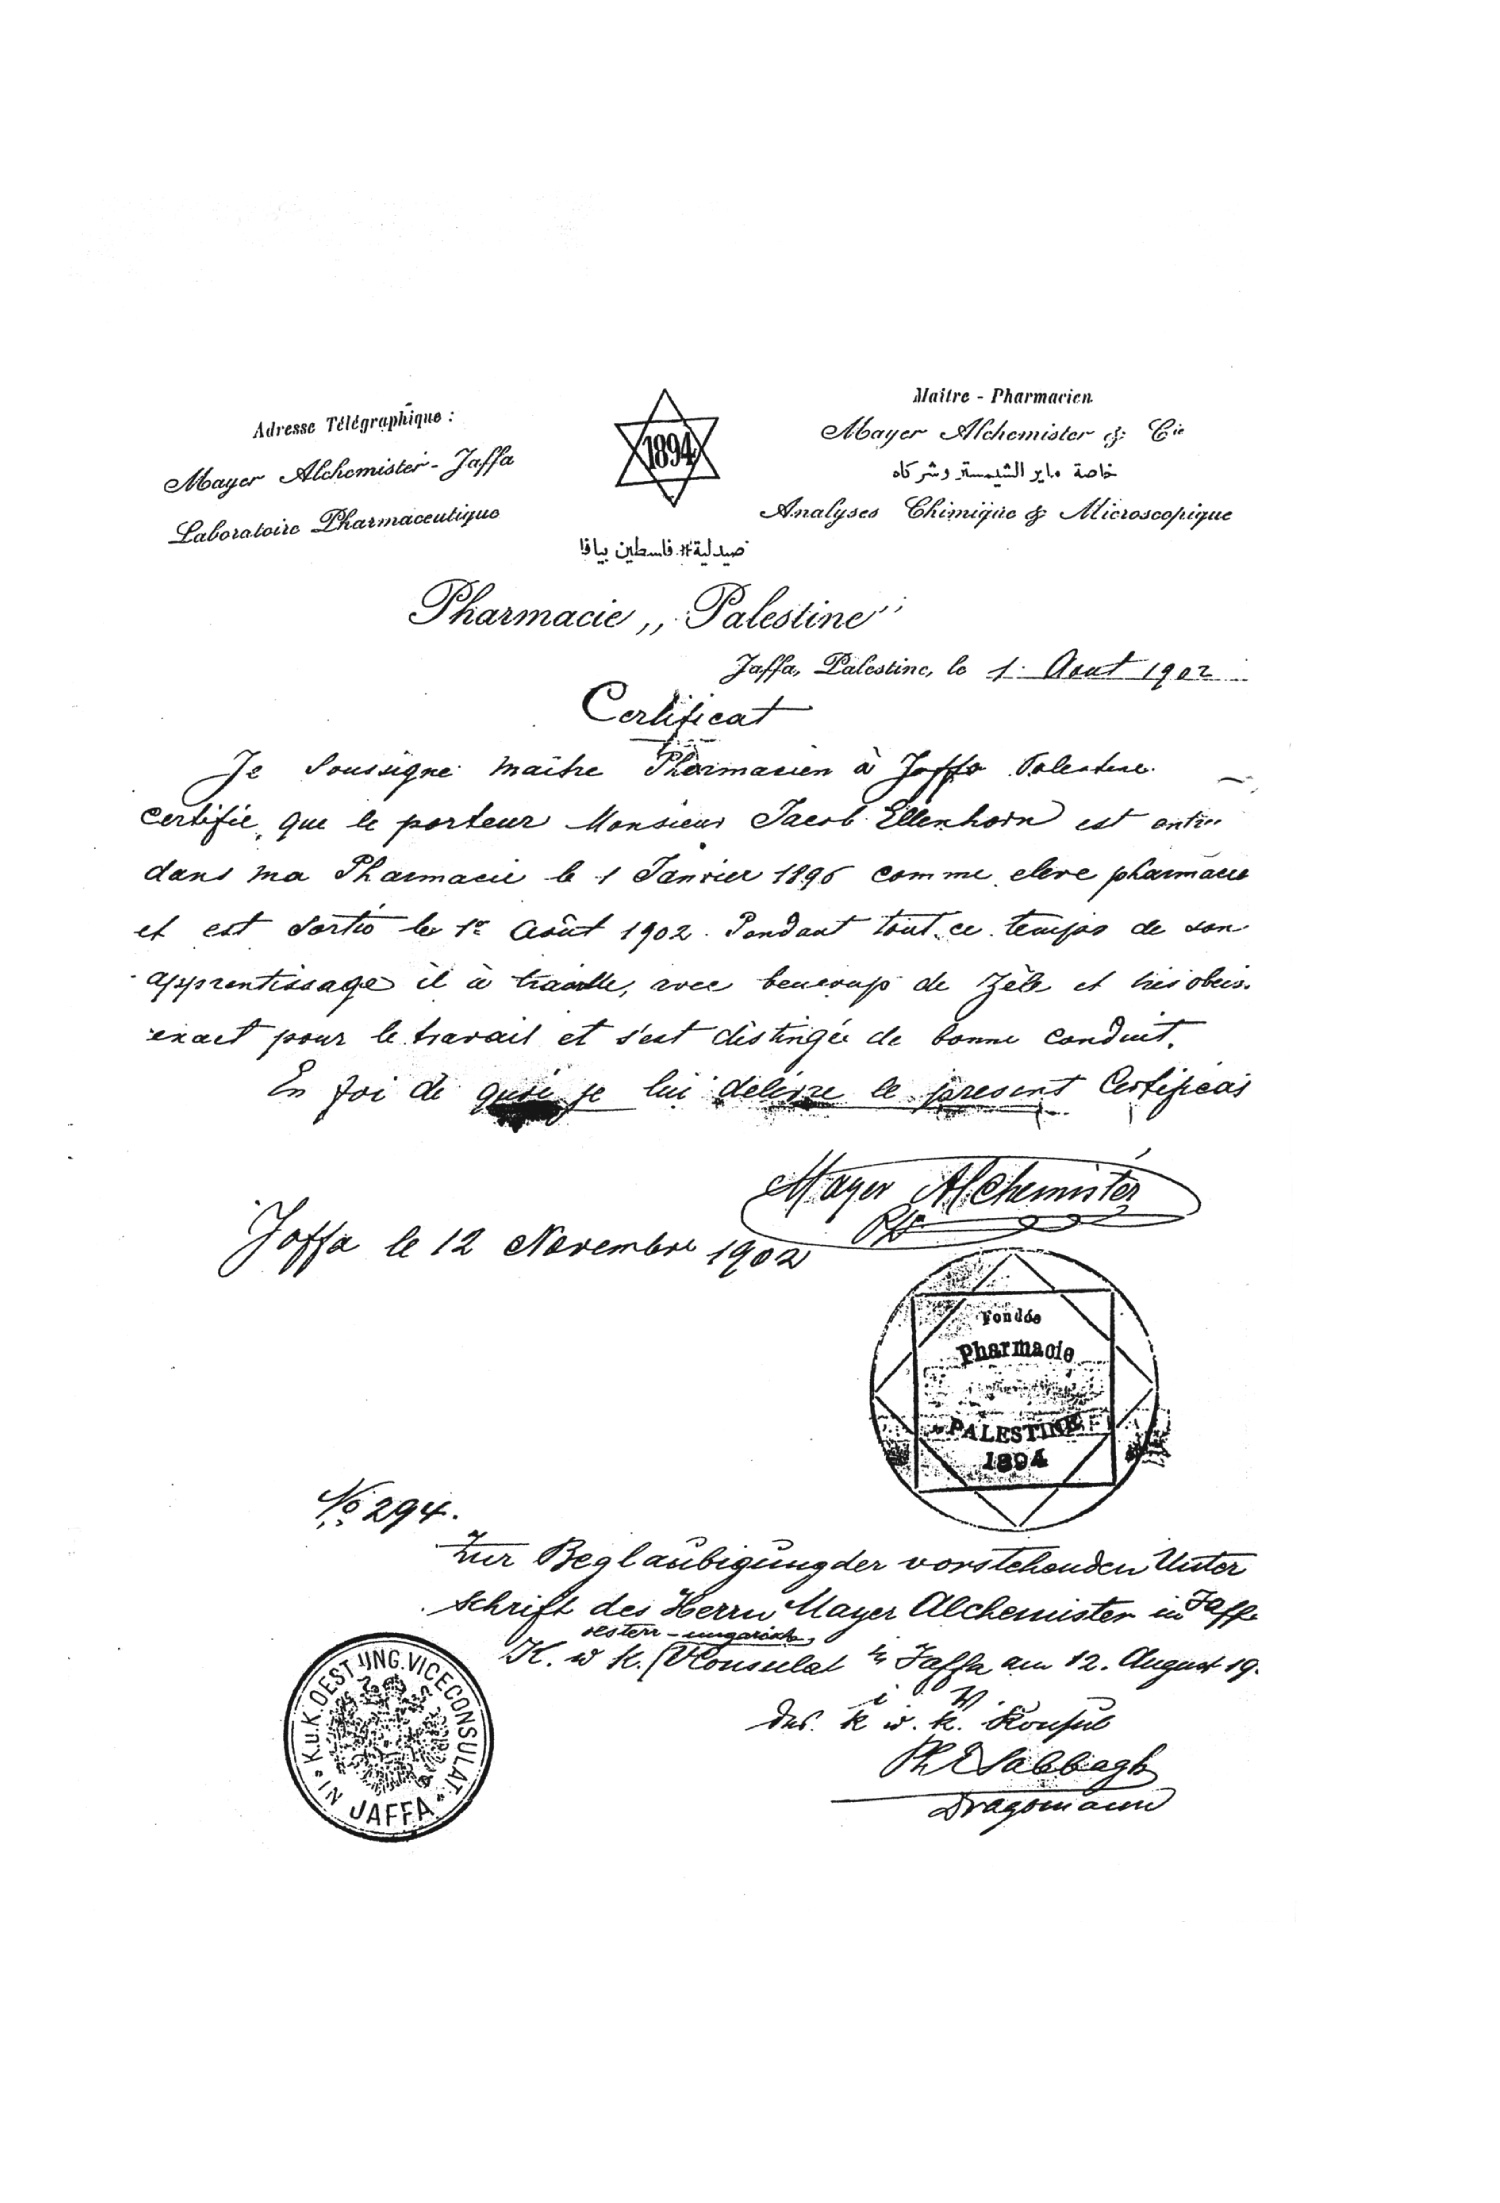 Adresse Télégraphique :
Mayer Alchemister - Jaffa
Laboratoire Pharmaceutique
1894
Maître - Pharmacien
Mayer Alchemister & Cie
خاصة ماير الشيمستر وشركاه
Analyses Chimique & Microscopique
صيدلية فلسطين بيافا
Pharmacie „ Palestine"
Jaffa, Palestine, le 1. Aout 1902
Certificat
Je soussigné maître Pharmacien à Jaffa Palestine
certifie, que le porteur Monsieur Jacob Ellenhorn est entré
dans ma Pharmacie le 1 Janvier 1896 comme eleve pharmacie
et est sortie le 1er Août 1902. Pendant tout ce temps de son
apprentissage il à travaille, avec beucoup de zèle et très
exact pour le travail et s'est distingée de bonne conduit.
En foi de quoi je lui delivre le present Certificat
Mayer Alchemister
Jaffa le 12 Novembre 1902
Fondée
Pharmacie
PALESTINE
1894
No 294.
Zur Beglaubigung der vorstehenden Unter
schrift des Herrn Mayer Alchemister in Jaffa
oesterr-ungarische
K. u k. Konsulat in Jaffa am 12. August 19
i. V.
Der k u. k. Konsul
Ph Sabbagh
Dragomann
K.u.K. OEST.UNG. VICECONSULAT
IN JAFFA